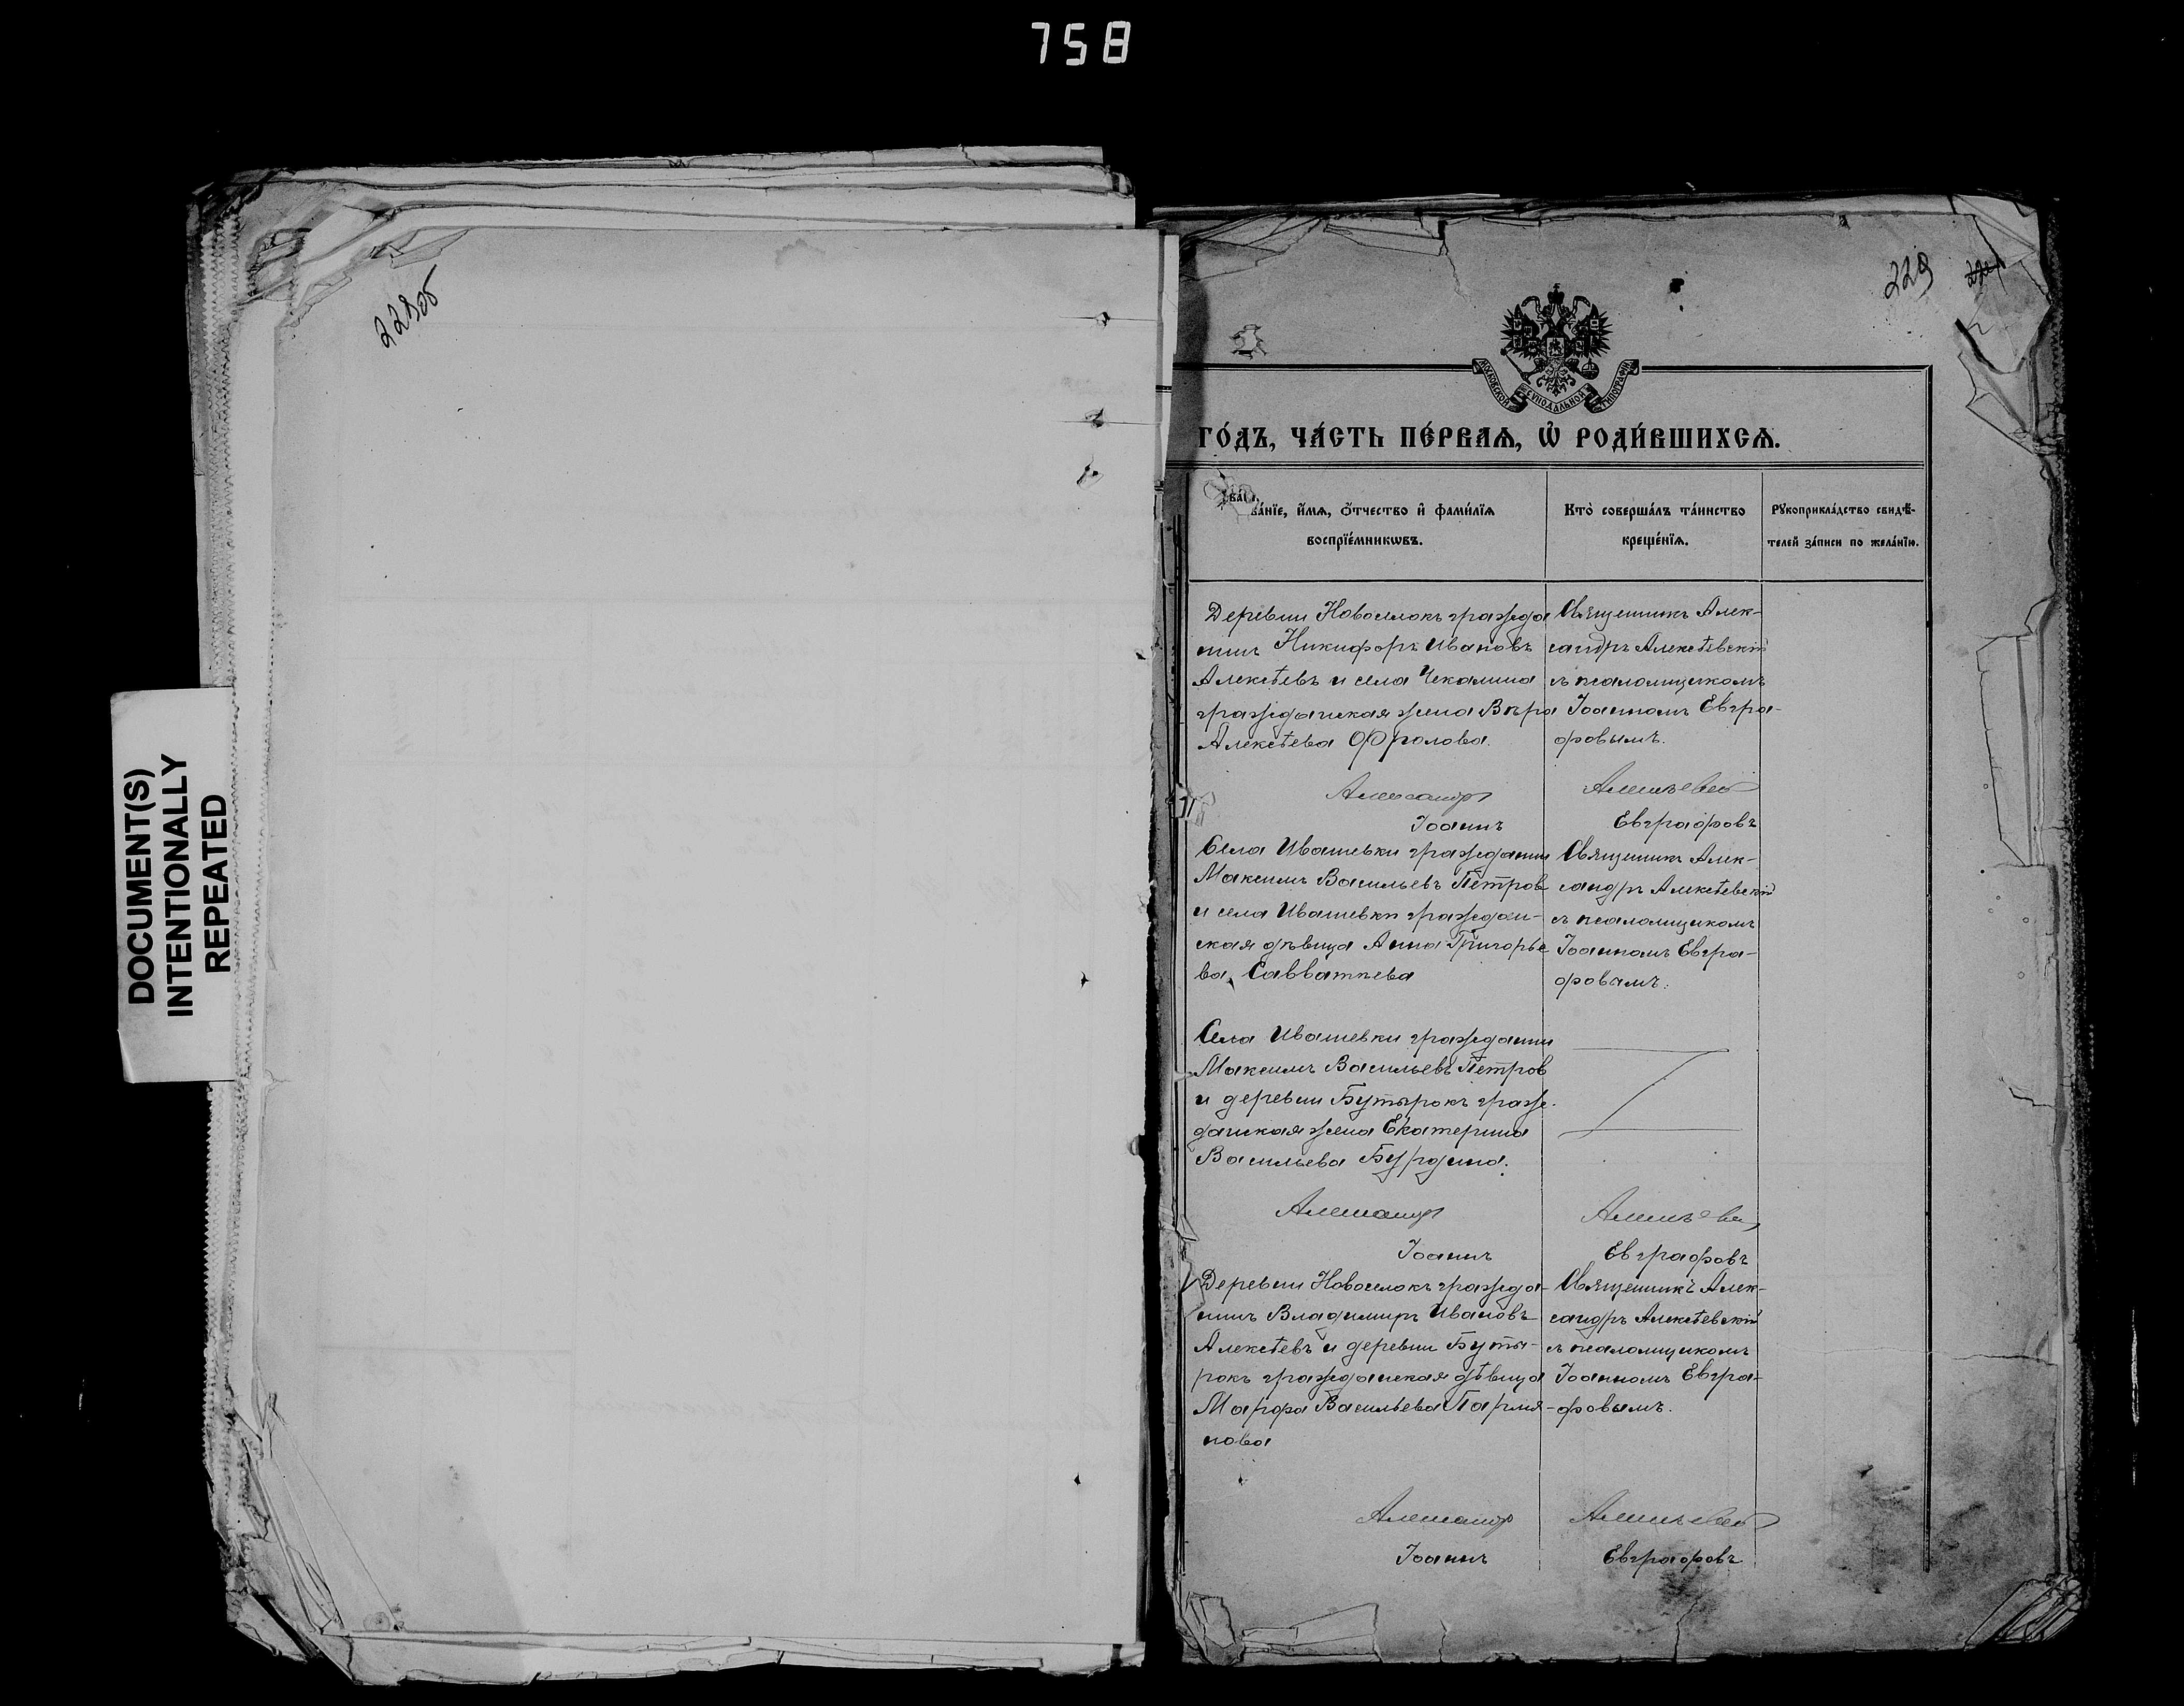 758
228об
DOCUMENT(S)
INTENTIONALLY
REPEATED
229
МОСКОВСКОЙ СѴНОДАЛЬНОЙ ТИПОГРАФІИ
ГО́ДЪ, ЧА́СТЬ ПЕ́РВАѦ, Ѡ҆ РОДИ́ВШИХСѦ.
ва́нїе, и҆́мѧ, ѻ҆́тчество и҆ фами́лїѧ
воспрїе́мникѡвъ.
Кто̀ соверша́лъ та́инство
креще́нїѧ.
Рꙋкоприкла́дство свидѣ́-
телей за́писи по жела́нїю.
Деревни Новоселокъ гражда
нинъ Никифоръ Ивановъ
Алексѣевъ и села Чекалина
гражданская жена Вѣра
Алексѣева Фролова.
Священникъ Алек-
сандръ Алексѣевскій
съ псаломщикомъ
Іоанномъ Евгра-
фовымъ.
Александр
Іоаннъ
Евграфовъ
Села Ивашевки гражданин
Максимъ Васильевъ Петров
и села Ивашевки граждан-
ская дѣвица Анна Григорье
ва Савватѣева
Священникъ Алек-
сандръ Алексѣевскій
съ псаломщикомъ
Іоанномъ Евгра-
фовымъ.
Села Ивашевки гражданин
Максимъ Васильевъ Петров
и деревни Бутырокъ граж-
данская жена Екатерина
Васильева Бурдина.
Александр
Іоаннъ
Евграфовъ
Деревни Новоселокъ гражда-
нинъ Владимиръ Ивановъ
Алексѣевъ и деревни Буты-
рокъ гражданская дѣвица
Марфа Васильева Парме-
нова
Священникъ Алек-
сандръ Алексѣевскій
съ псаломщикомъ
Іоанномъ Евгра-
фовымъ.
Александр
Іоаннъ
Евграфовъ